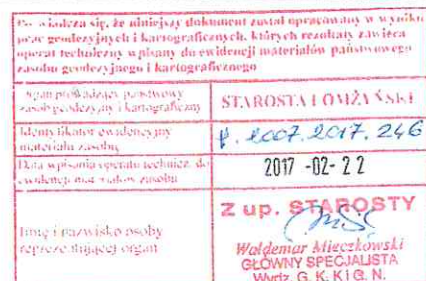 Po świadcza się, że niniejszy dokument został opracowany w wyniku
prac geodezyjnych i kartograficznych, których rezultaty zawiera
operat techniczny wpisany do ewidencji materiałów państwowego
zasobu geodezyjnego i kartograficznego
Organ prowadzący państwowy
zasób geodezyjny i kartograficzny
STAROSTA ŁOMŻYŃSKI
Identyfikator ewidencyjny
materiału zasobu
P. 2007.2017. 246
Data wpisania operatu technicz. do
ewidencji materiałów zasobu
2017 -02- 2 2
Imię i nazwisko osoby
reprezentującej organ
Z up. STAROSTY
Waldemar Mieczkowski
GŁÓWNY SPECJALISTA
Wydz. G. K. K i G. N.